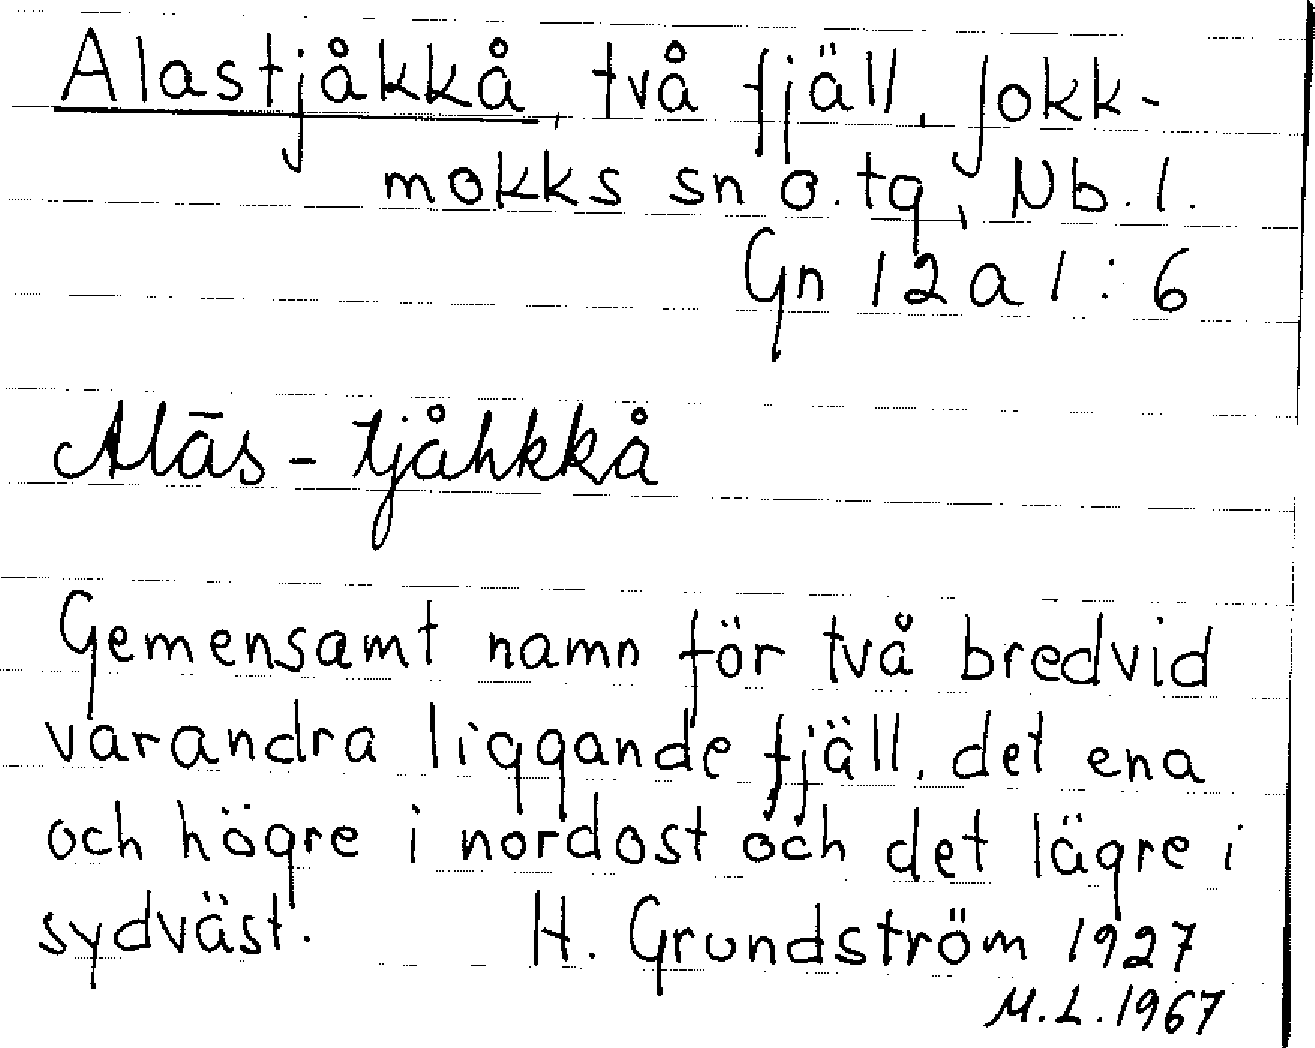 Alastjåkkå, två fjäll, Jokk-
mokks sn o. tg, Nb. l.
Gn 12 a 1 : 6
Alās-tjåhkkå
Gemensamt namn för två bredvid
varandra liggande fjäll, det ena
och högre i nordost och det lägre i
sydväst. H. Grundström 1927
M.L. 1967